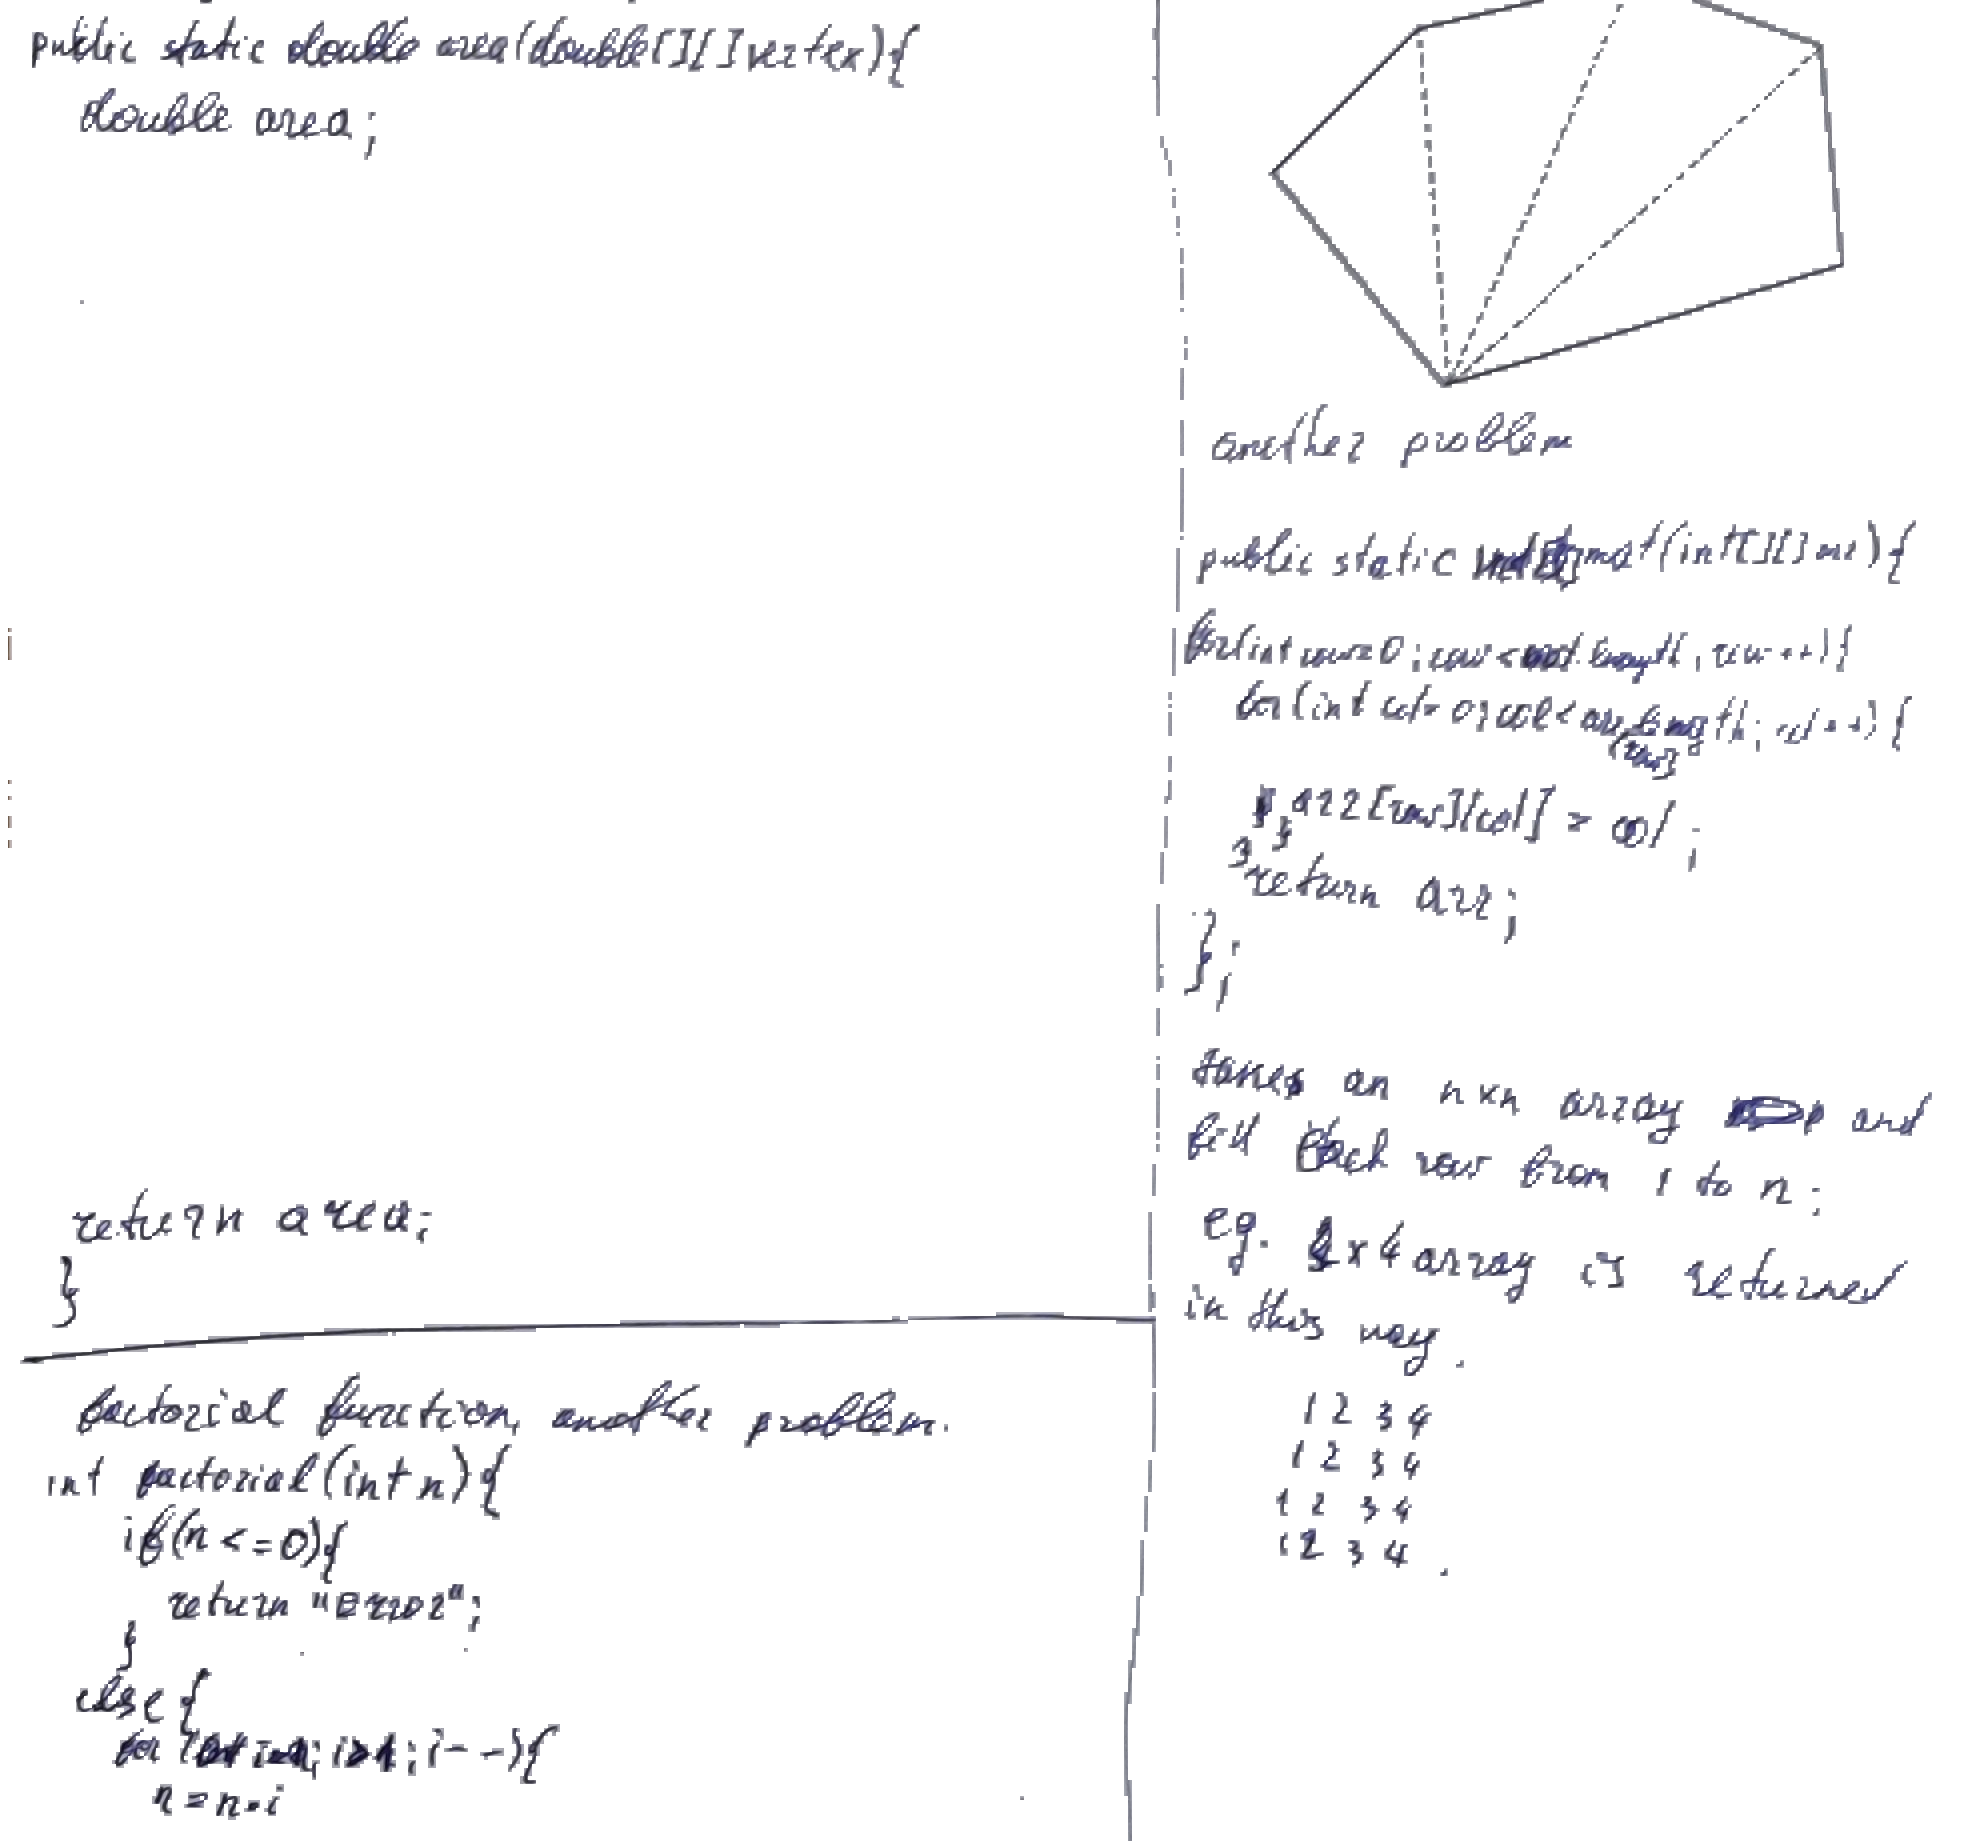 public static double area(double[][]vertex){
double area;
return area;
}
factorial function, another problem.
int factorial(int n){
if(n <= 0){
return "Error";
}
else{
for (int i=n; i>1; i--){
n = n*i
another problem
public static mat(int[][] arr){
for(int row=0; row < length; row++){
for(int col=0; col < arr[row].length; col++){
arr[row][col] = col;
}
}
return arr;
};
takes an nxn array and
fill each row from 1 to n;
eg. 4x4 array is returned
in this way.
1 2 3 4
1 2 3 4
1 2 3 4
1 2 3 4 .